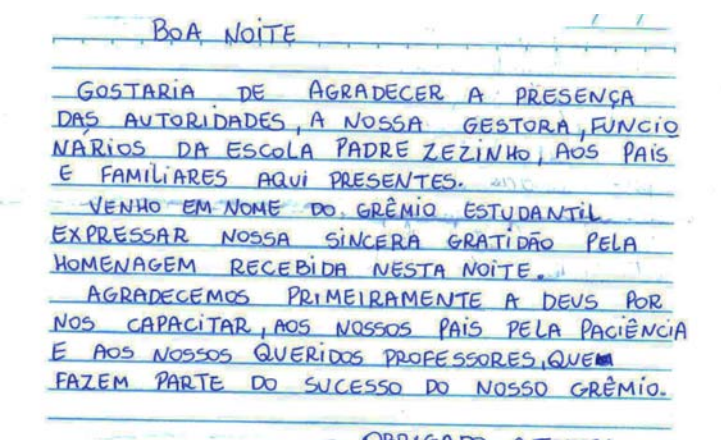 BOA NOITE
GOSTARIA DE AGRADECER A PRESENÇA
DAS AUTORIDADES, A NOSSA GESTORA, FUNCIO
NÁRIOS DA ESCOLA PADRE ZEZINHO, AOS PAIS
E FAMILIARES AQUI PRESENTES.
VENHO EM NOME DO GRÊMIO ESTUDANTIL
EXPRESSAR NOSSA SINCERA GRATIDÃO PELA
HOMENAGEM RECEBIDA NESTA NOITE.
AGRADECEMOS PRIMEIRAMENTE A DEUS POR
NOS CAPACITAR, AOS NOSSOS PAIS PELA PACIÊNCIA
E AOS NOSSOS QUERIDOS PROFESSORES, QUE
FAZEM PARTE DO SUCESSO DO NOSSO GRÊMIO.
OBRIGADO